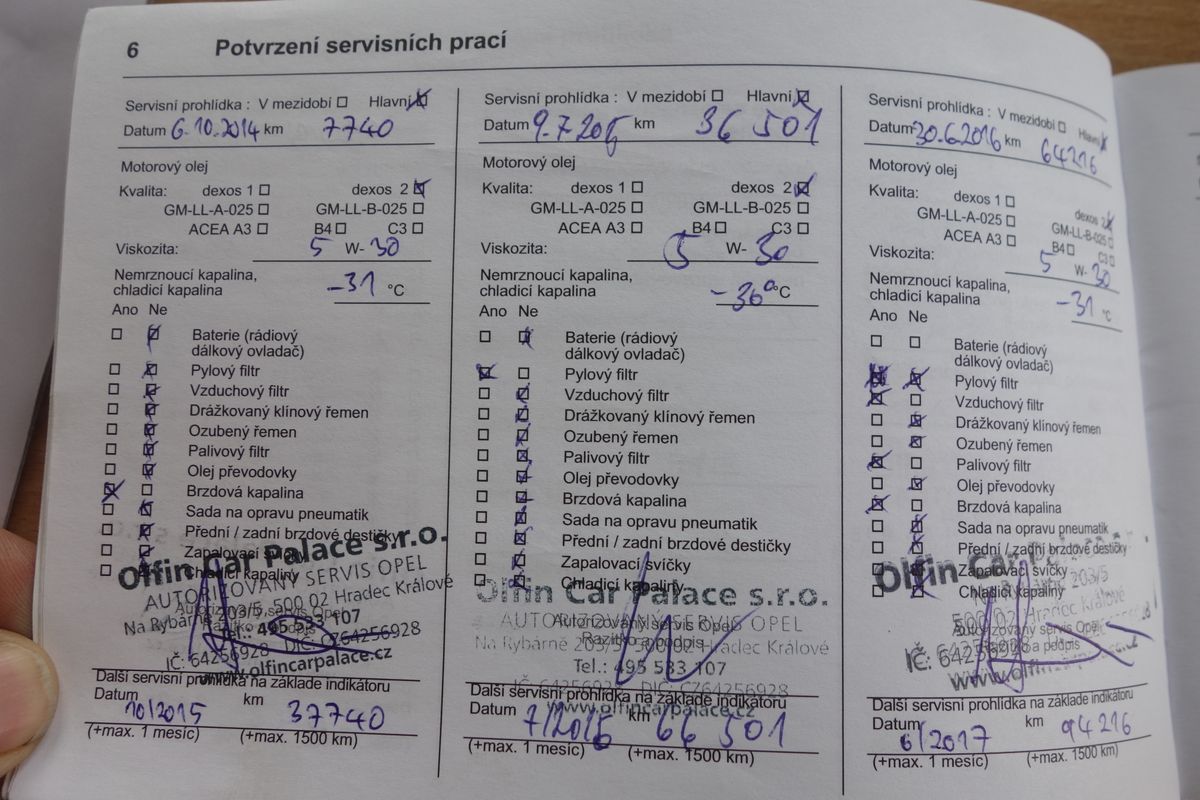 6 Potvrzení servisních prací
Servisní prohlídka : V mezidobí Hlavní
Datum 6.10.2014 km 7740
Motorový olej
Kvalita: dexos 1 dexos 2
GM-LL-A-025 GM-LL-B-025
ACEA A3 B4 C3
Viskozita: 5 W- 30
Nemrznoucí kapalina,
chladicí kapalina -31 °C
Ano Ne
Baterie (rádiový
dálkový ovladač)
Pylový filtr
Vzduchový filtr
Drážkovaný klínový řemen
Ozubený řemen
Palivový filtr
Olej převodovky
Brzdová kapalina
Sada na opravu pneumatik
Přední / zadní brzdové destičky
Zapalovací svíčky
Chladicí kapaliny
Olfin Car Palace s.r.o.
AUTORIZOVANÝ SERVIS OPEL
Autorizovaný servis Opel
Na Rybárně 203/5, 500 02 Hradec Králové
Razítko a podpis
Tel.: 495 533 107
IČ: 64256928 DIČ: CZ64256928
www.olfincarpalace.cz
Další servisní prohlídka na základě indikátoru
Datum 10/2015 km 37740
(+max. 1 měsíc) (+max. 1500 km)
Servisní prohlídka : V mezidobí Hlavní
Datum 9.7.2015 km 36 501
Motorový olej
Kvalita: dexos 1 dexos 2
GM-LL-A-025 GM-LL-B-025
ACEA A3 B4 C3
Viskozita: 5 W- 30
Nemrznoucí kapalina,
chladicí kapalina -36° °C
Ano Ne
Baterie (rádiový
dálkový ovladač)
Pylový filtr
Vzduchový filtr
Drážkovaný klínový řemen
Ozubený řemen
Palivový filtr
Olej převodovky
Brzdová kapalina
Sada na opravu pneumatik
Přední / zadní brzdové destičky
Zapalovací svíčky
Chladicí kapaliny
Olfin Car Palace s.r.o.
AUTORIZOVANÝ SERVIS OPEL
Autorizovaný servis Opel
Na Rybárně 203/5, 500 02 Hradec Králové
Razítko a podpis
Tel.: 495 533 107
IČ: 64256928 DIČ: CZ64256928
www.olfincarpalace.cz
Další servisní prohlídka na základě indikátoru
Datum 7/2016 km 66 501
(+max. 1 měsíc) (+max. 1500 km)
Servisní prohlídka : V mezidobí Hlavní
Datum 30.6.2016 km 64216
Motorový olej
Kvalita: dexos 1 dexos 2
GM-LL-A-025 GM-LL-B-025
ACEA A3 B4 C3
Viskozita: 5 W- 30
Nemrznoucí kapalina,
chladicí kapalina -31 °C
Ano Ne
Baterie (rádiový
dálkový ovladač)
Pylový filtr
Vzduchový filtr
Drážkovaný klínový řemen
Ozubený řemen
Palivový filtr
Olej převodovky
Brzdová kapalina
Sada na opravu pneumatik
Přední / zadní brzdové destičky
Zapalovací svíčky
Chladicí kapaliny
Olfin Car
203/5
500 02 Hradec Králové
Autorizovaný servis Opel
Razítko a podpis
IČ: 64256928
www.olfin
Další servisní prohlídka na základě indikátoru
Datum 6/2017 km 94216
(+max. 1 měsíc) (+max. 1500 km)